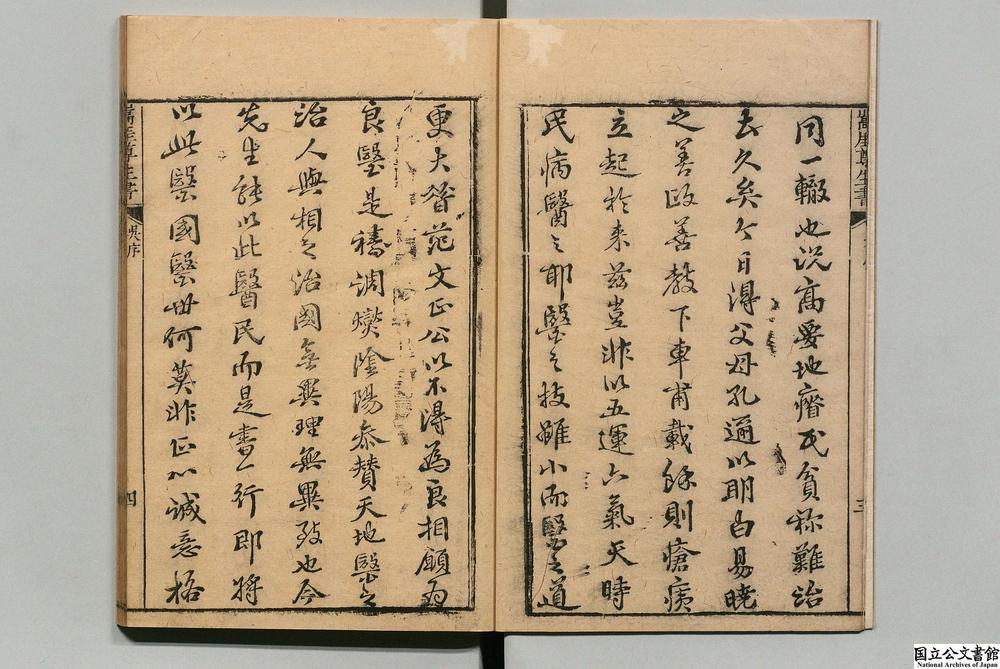 同一轍也況高要地瘠民貧称難治
去久矣今日得父母孔邇以明白易曉
之善政善教下車甫載餘則瘡痍
立起於来茲豈非以五運六氣天時
民病醫之耶醫之技雖小而醫之道
更大昔范文正公以不得為良相願為
良醫是禱調燮陰陽叅賛天地醫之
治人與相之治國無異理無異致也今
先生能以此醫民而是書一行即将
以此醫國醫世何莫非正心誠意格
嵩厓尊生書
三
嵩厓尊生書
吳序
四
国立公文書館
National Archives of Japan